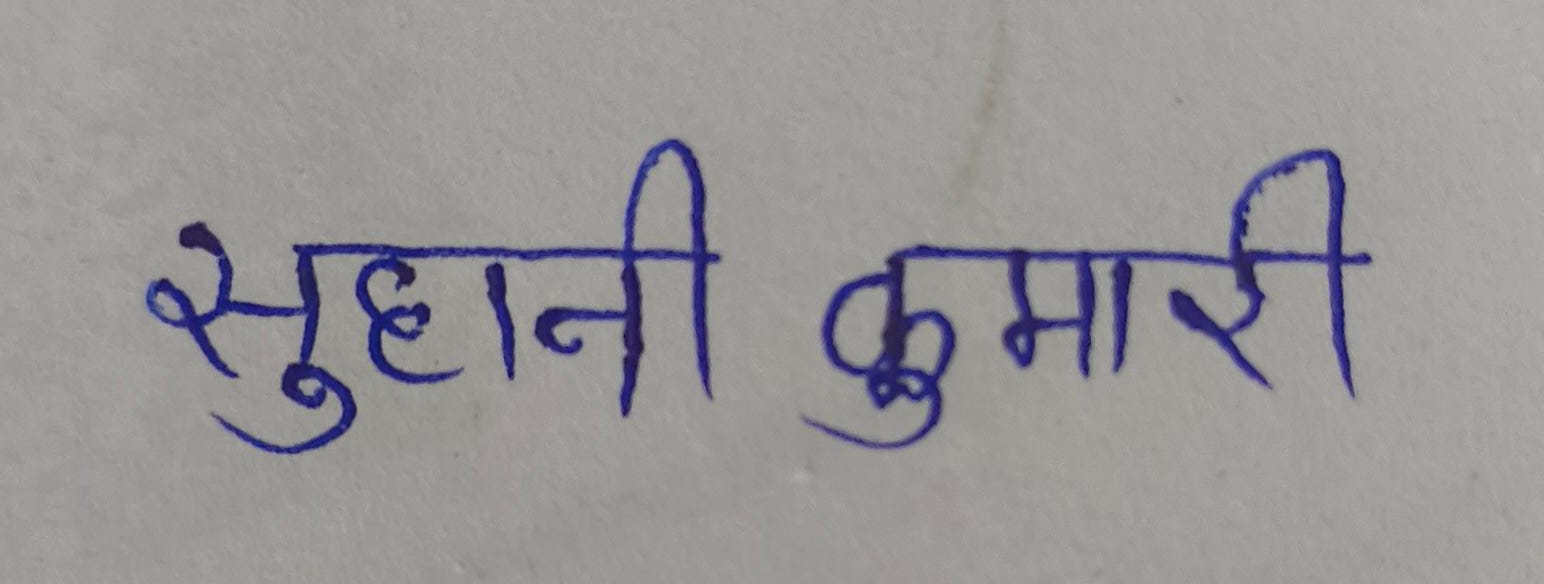 सुहानी कुमारी